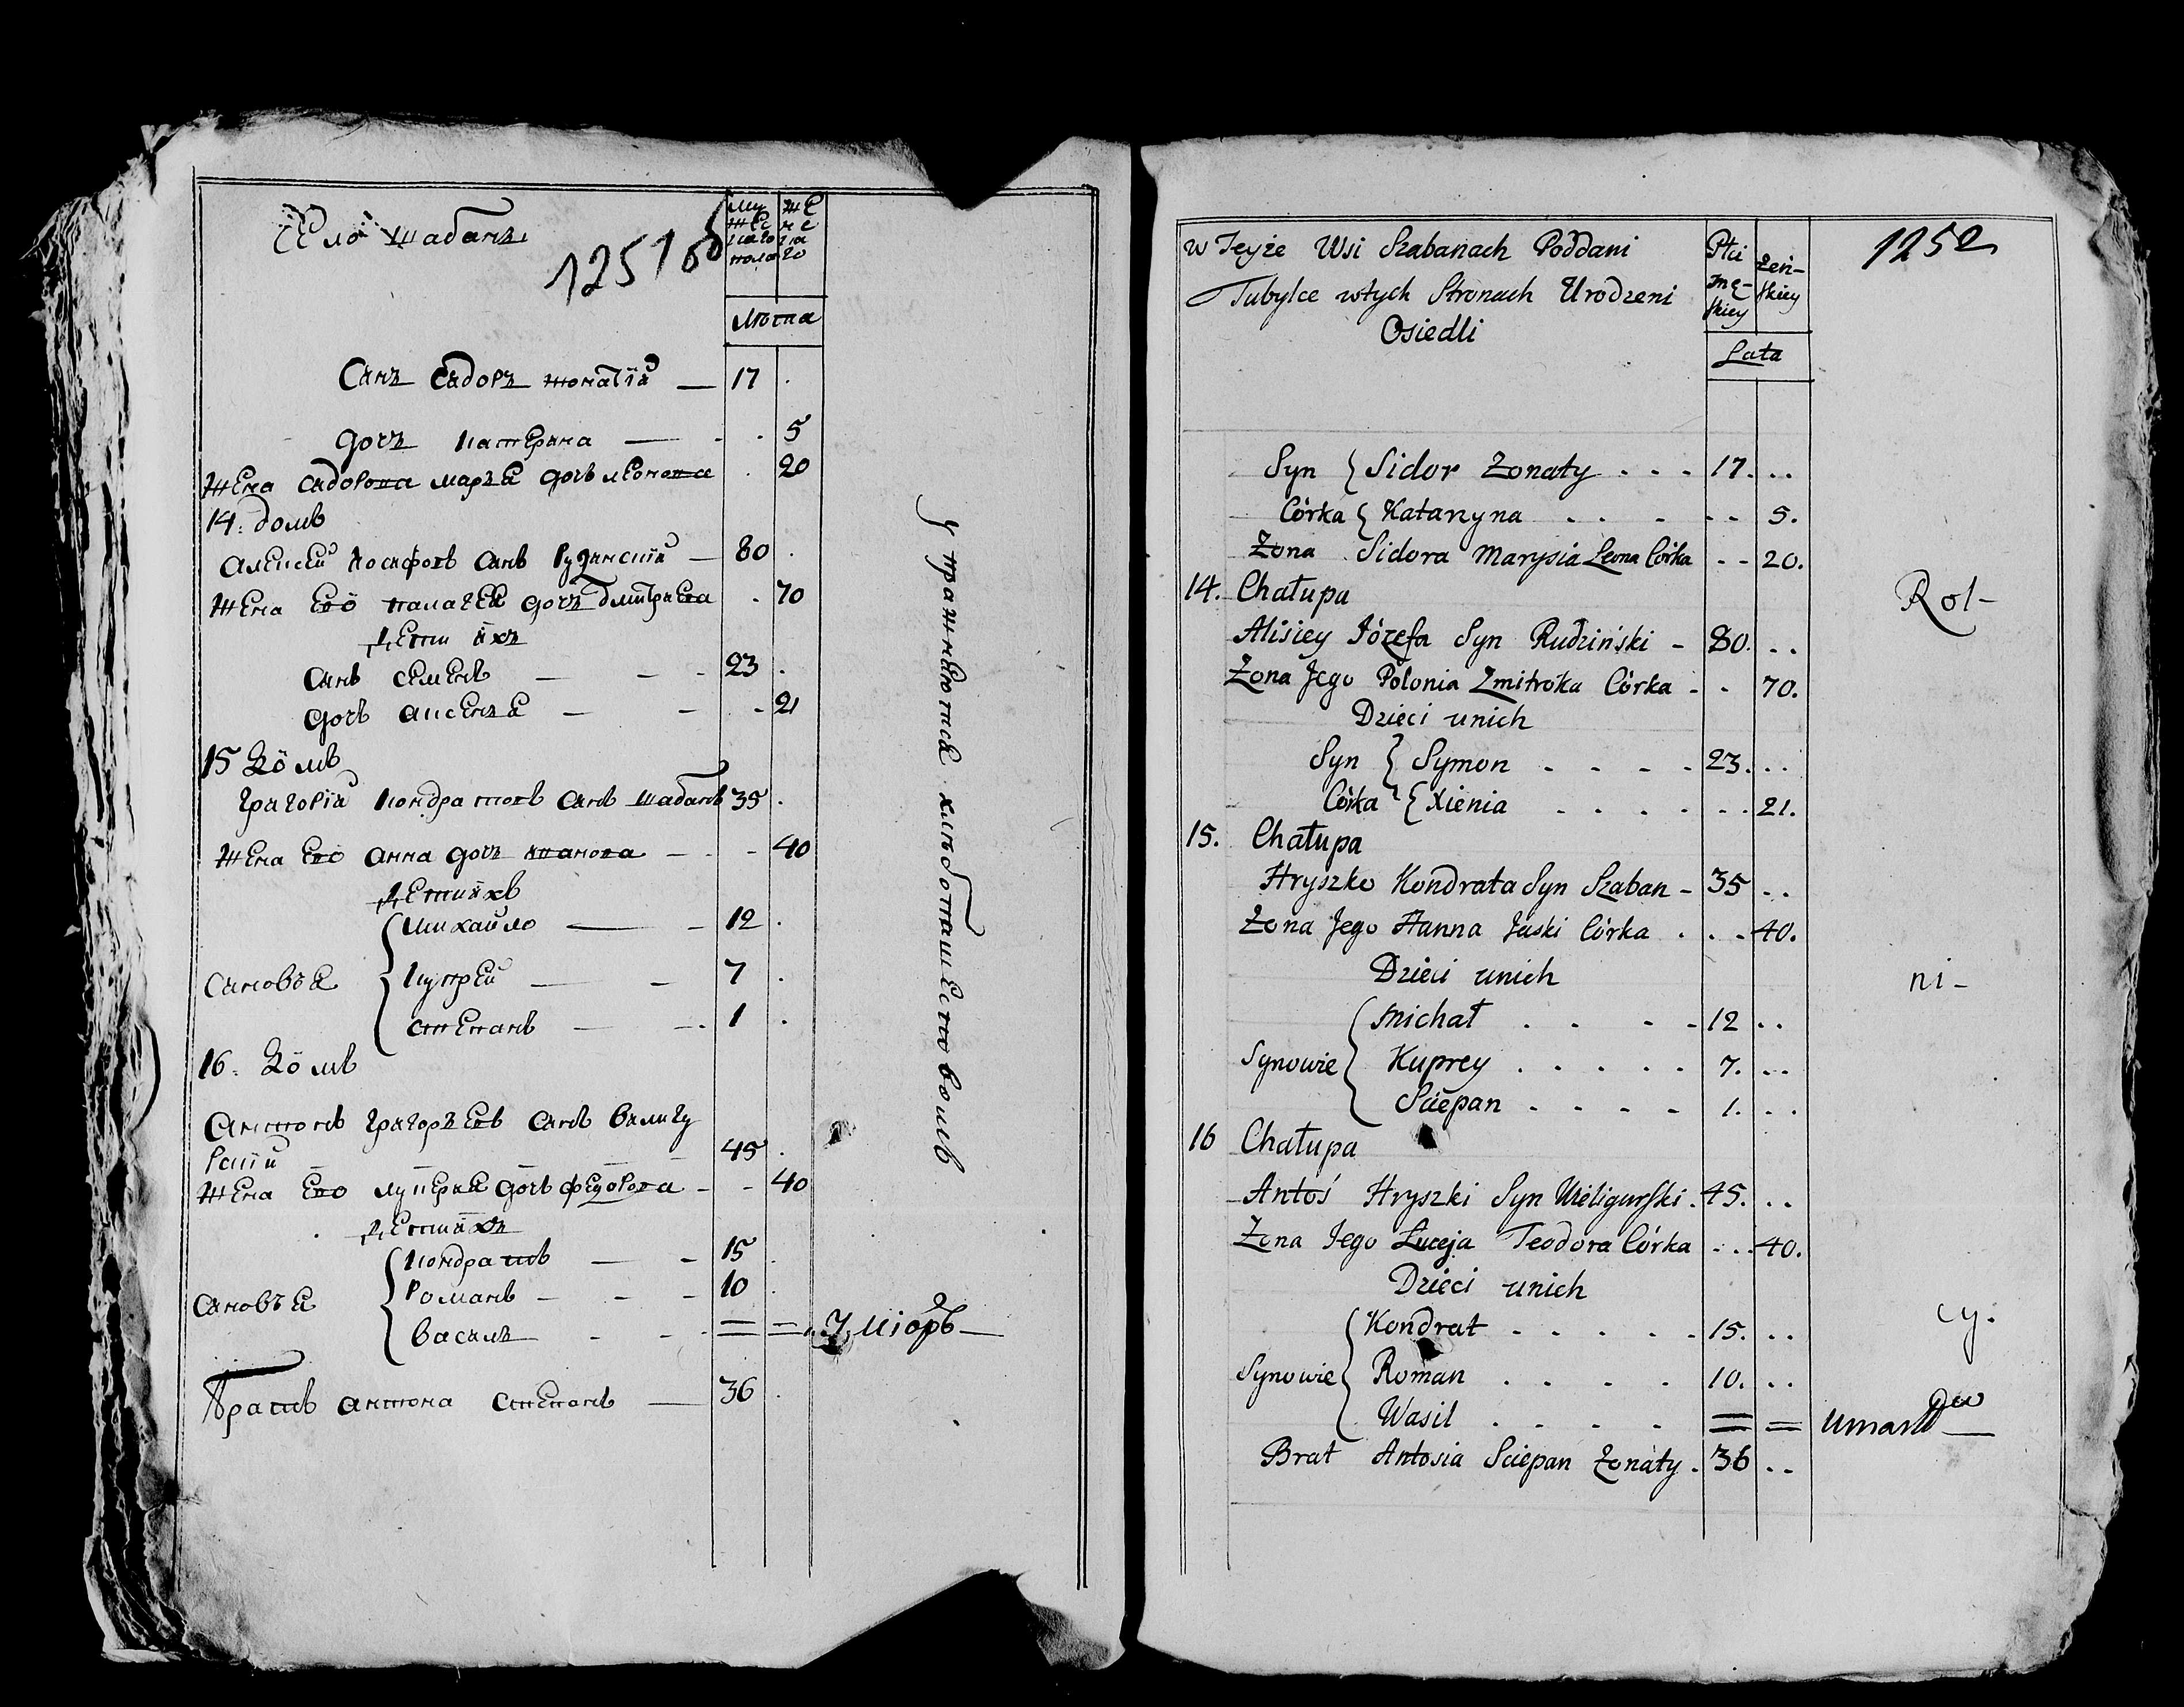 Село Шабанъ
1251 об
мужескаго пола
женскаго
Лѣта
Сынъ Сидоръ жонатій — 17 .
дочъ Катерына — . 5
жена Сидорова марья дочь леонова . 20
14. домъ
Алексей Іосифовъ сынъ Рудзинскій — 80 .
жена Ево палагея дочъ дмитриева . 70
дети ихъ
сынъ семенъ — - - 23 .
дочь аксенья — - - 21
15 Домъ
григорій кондратовъ сынъ шабанъ 35 .
жена Ево анна дочъ иванова - - 40
дети ихъ
сыновъя
михайло — - 12 .
купрей — - 7 .
степанъ — - 1 .
16. Домъ
Антонъ григорьевъ сынъ валигу
рскій - - - 45 .
жена Ево лукерия дочь федорова - - 40
дети ихъ
сыновъя
кондратъ — - 15 .
Романъ - - - 10 .
василь - - = = Уміоръ —
братъ антона степанъ — 36 .
упражняются хлѣбопашествомъ
w Teyże Wsi Szabanach Poddani
Tubylce wtych Stronach Urodzeni
Osiedli
Płci mę-skiey
żeń-skiey
Lata
1252
Syn { Sidor Zonaty . . . 17. . .
Córka { Katarzyna . . . - - 5.
Zona Sidora Marysia Leona Córka - - 20.
14. Chałupa
Alisiey Józefa Syn Rudziński - 80. . .
Żona Jego Polonia Zmitroka Córka - . 70.
Dzieci unich
Syn } Symon . . . . 23. . .
Córka { Xienia . . . . . . 21.
15. Chałupa
Hryszko Kondrata Syn Szaban - 35 . .
Żona Jego Hanna Jaski Córka . . . 40.
Dzieci unich
Synowie
Michał . . . . 12 . .
Kuprey . . . . . 7. . .
Sciepan . . . . 1. . .
16 Chałupa
Antoś Hryszki Syn Wieligurski . 45. . .
Zona Jego Łuceja Teodora Córka . . . 40.
Dzieci unich
Synowie
Kondrat . . . . . 15. . .
Roman . . . . 10. . .
Wasil . . . . = = umarł —
Brat Antosia Sciepan Żonaty . 36 . .
Rol-
ni-
cy.